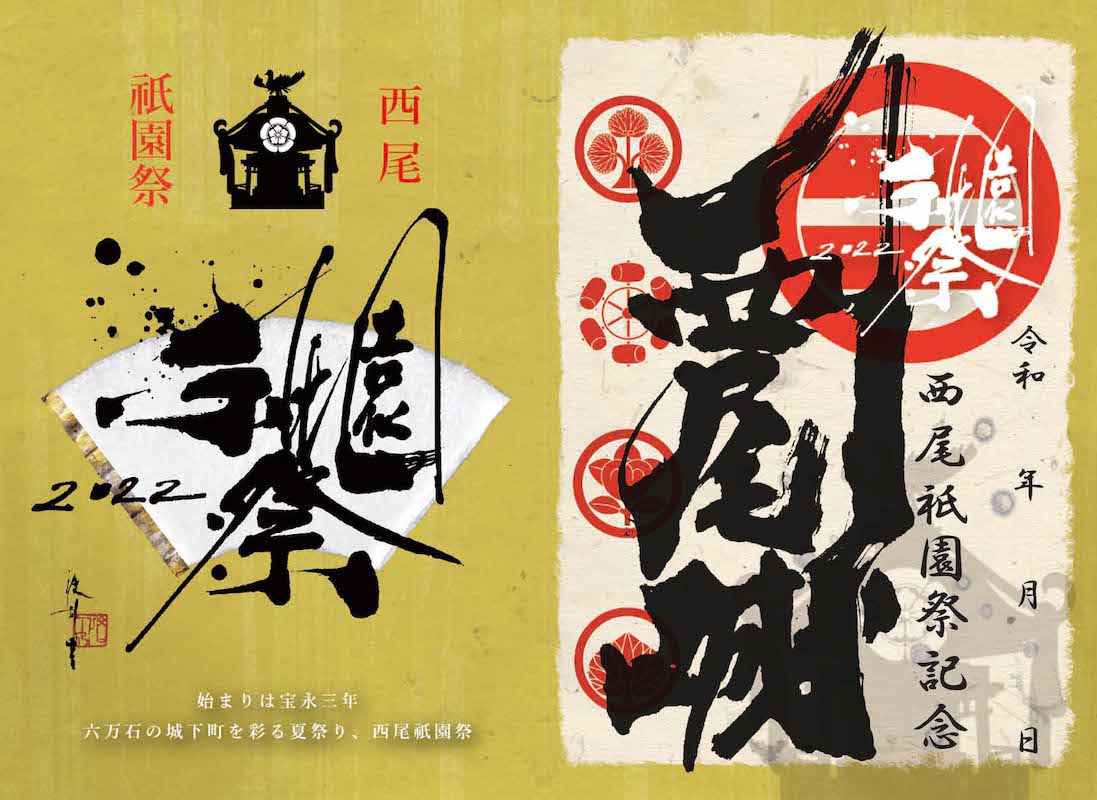 西尾
祇園祭
祇園祭
2022
始まりは宝永三年
六万石の城下町を彩る夏祭り、西尾祇園祭
祇園祭
2022
西尾
令和 年 月 日
西尾祇園祭記念